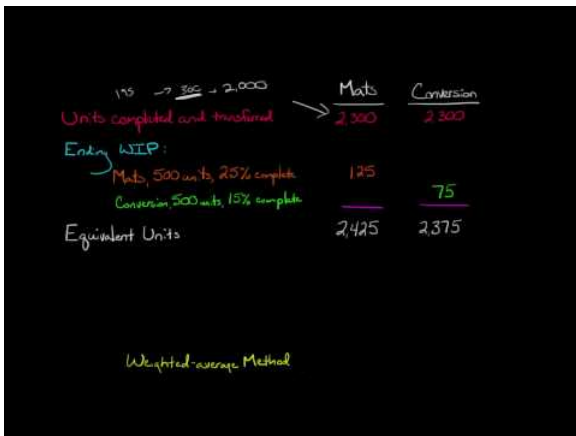 195 → 300 + 2,000
Mats Conversion
Units completed and transferred 2 300 2 300
Ending WIP:
Mats, 500 units, 25% complete 125
Conversion, 500 units, 15% complete 75
Equivalent Units 2,425 2,375
Weighted-average Method